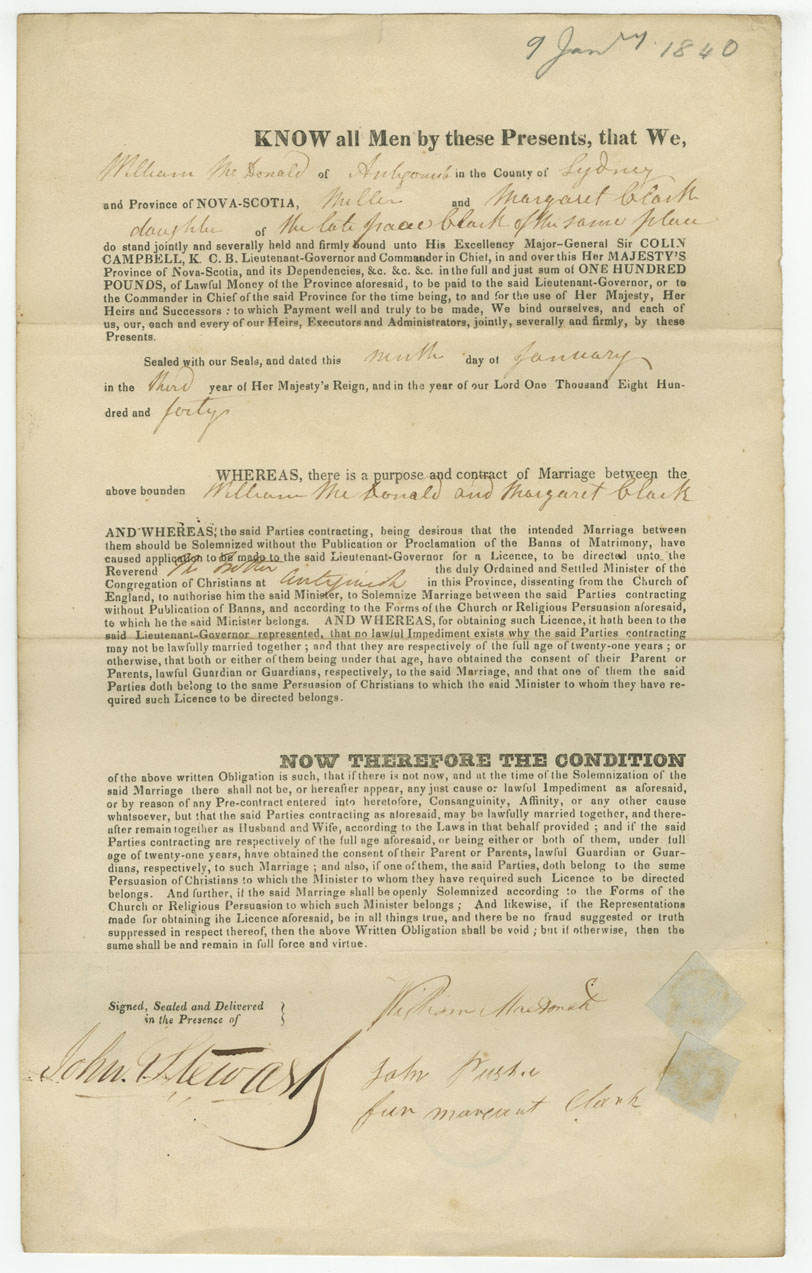 9 Jany 1840
KNOW all Men by these Presents, that We,
William McDonald of in the County of Sydney
and Province of NOVA-SCOTIA, Miller and Margaret Clark
daughter of the late Isaac Clark of the same place
do stand jointly and severally held and firmly bound unto His Excellency Major-General Sir COLIN
CAMPBELL, K. C. B. Lieutenant-Governor and Commander in Chief, in and over this Her MAJESTY'S
Province of Nova-Scotia, and its Dependencies, &c. &c. &c. in the full and just sum of ONE HUNDRED
POUNDS, of Lawful Money of the Province aforesaid, to be paid to the said Lieutenant-Governor, or to
the Commander in Chief of the said Province for the time being, to and for the use of Her Majesty, Her
Heirs and Successors : to which Payment well and truly to be made, We bind ourselves, and each of
us, our, each and every of our Heirs, Executors and Administrators, jointly, severally and firmly, by these
Presents.
Sealed with our Seals, and dated this ninth day of January
in the third year of Her Majesty's Reign, and in the year of our Lord One Thousand Eight Hun-
dred and forty
WHEREAS, there is a purpose and contract of Marriage between the
above bounden William McDonald and Margaret Clark
AND WHEREAS, the said Parties contracting, being desirous that the intended Marriage between
them should be Solemnized without the Publication or Proclamation of the Banns of Matrimony, have
caused application to be made to the said Lieutenant-Governor for a Licence, to be directed unto the
Reverend the duly Ordained and Settled Minister of the
Congregation of Christians at Antigonish in this Province, dissenting from the Church of
England, to authorise him the said Minister, to Solemnize Marriage between the said Parties contracting
without Publication of Banns, and according to the Forms of the Church or Religious Persuasion aforesaid,
to which he the said Minister belongs. AND WHEREAS, for obtaining such Licence, it hath been to the
said Lieutenant-Governor represented, that no lawful Impediment exists why the said Parties contracting
may not be lawfully married together ; and that they are respectively of the full age of twenty-one years ; or
otherwise, that both or either of them being under that age, have obtained the consent of their Parent or
Parents, lawful Guardian or Guardians, respectively, to the said Marriage, and that one of them the said
Parties doth belong to the same Persuasion of Christians to which the said Minister to whom they have re-
quired such Licence to be directed belongs.
NOW THEREFORE THE CONDITION
of the above written Obligation is such, that if there is not now, and at the time of the Solemnization of the
said Marriage there shall not be, or hereafter appear, any just cause or lawful Impediment as aforesaid,
or by reason of any Pre-contract entered into heretofore, Consanguinity, Affinity, or any other cause
whatsoever, but that the said Parties contracting as aforesaid, may be lawfully married together, and there-
after remain together as Husband and Wife, according to the Laws in that behalf provided ; and if the said
Parties contracting are respectively of the full age aforesaid, or being either or both of them, under full
age of twenty-one years, have obtained the consent of their Parent or Parents, lawful Guardian or Guar-
dians, respectively, to such Marriage ; and also, if one of them, the said Parties, doth belong to the same
Persuasion of Christians to which the Minister to whom they have required such Licence to be directed
belongs. And further, if the said Marriage shall be openly Solemnized according to the Forms of the
Church or Religious Persuasion to which such Minister belongs ; And likewise, if the Representations
made for obtaining the Licence aforesaid, be in all things true, and there be no fraud suggested or truth
suppressed in respect thereof, then the above Written Obligation shall be void ; but if otherwise, then the
same shall be and remain in full force and virtue.
Signed, Sealed and Delivered
in the Presence of
William MacDonald
John Stewart
John
fur Clark